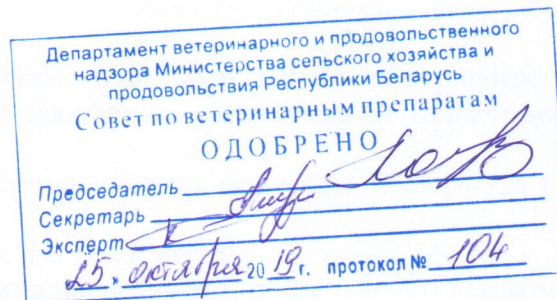 Департамент ветеринарного и продовольственного
надзора Министерства сельского хозяйства и
продовольствия Республики Беларусь
Совет по ветеринарным препаратам
ОДОБРЕНО
Председатель
Секретарь
Эксперт
25 » октября 20 19 г. протокол № 104